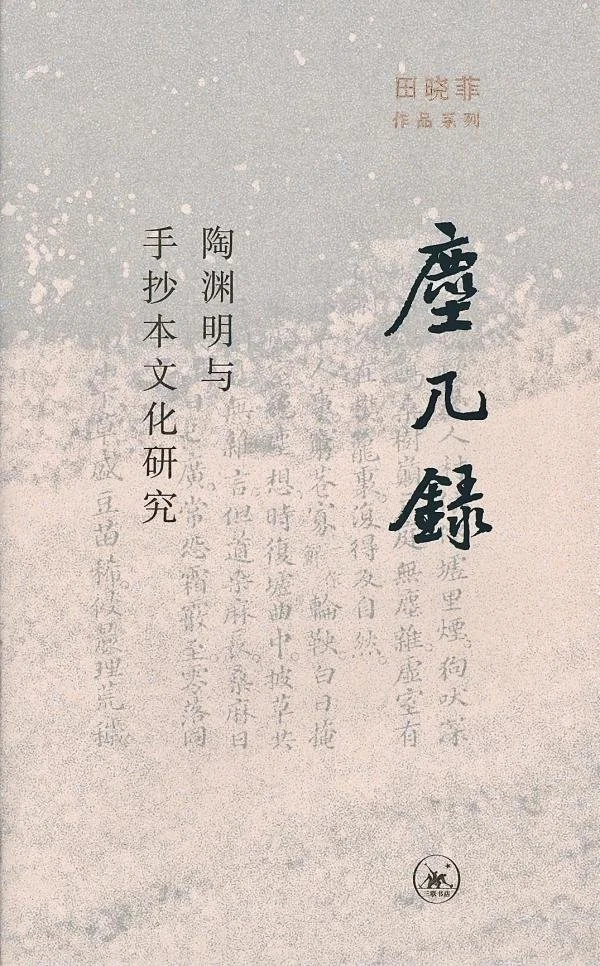 田晓菲
作品系列
塵几錄
陶渊明与
手抄本文化研究
人
墟里煙。狗吠深
樹巔
庭無塵雜。虛室有
裏。復得及自然。
窮巷寡
輪鞅。白日掩
想。時復墟曲中。披草共
無雜言。但道桑麻長。桑麻日
廣。常恐霜霰至。零落同
草盛豆苗稀。侵晨理荒穢。
三联书店